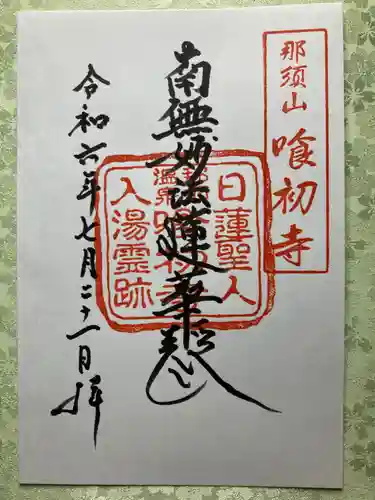 那須山 喰初寺
南無妙法蓮華経
日蓮聖人
那須温泉喰初寺
入湯霊跡
令和六年七月二十一日 拝